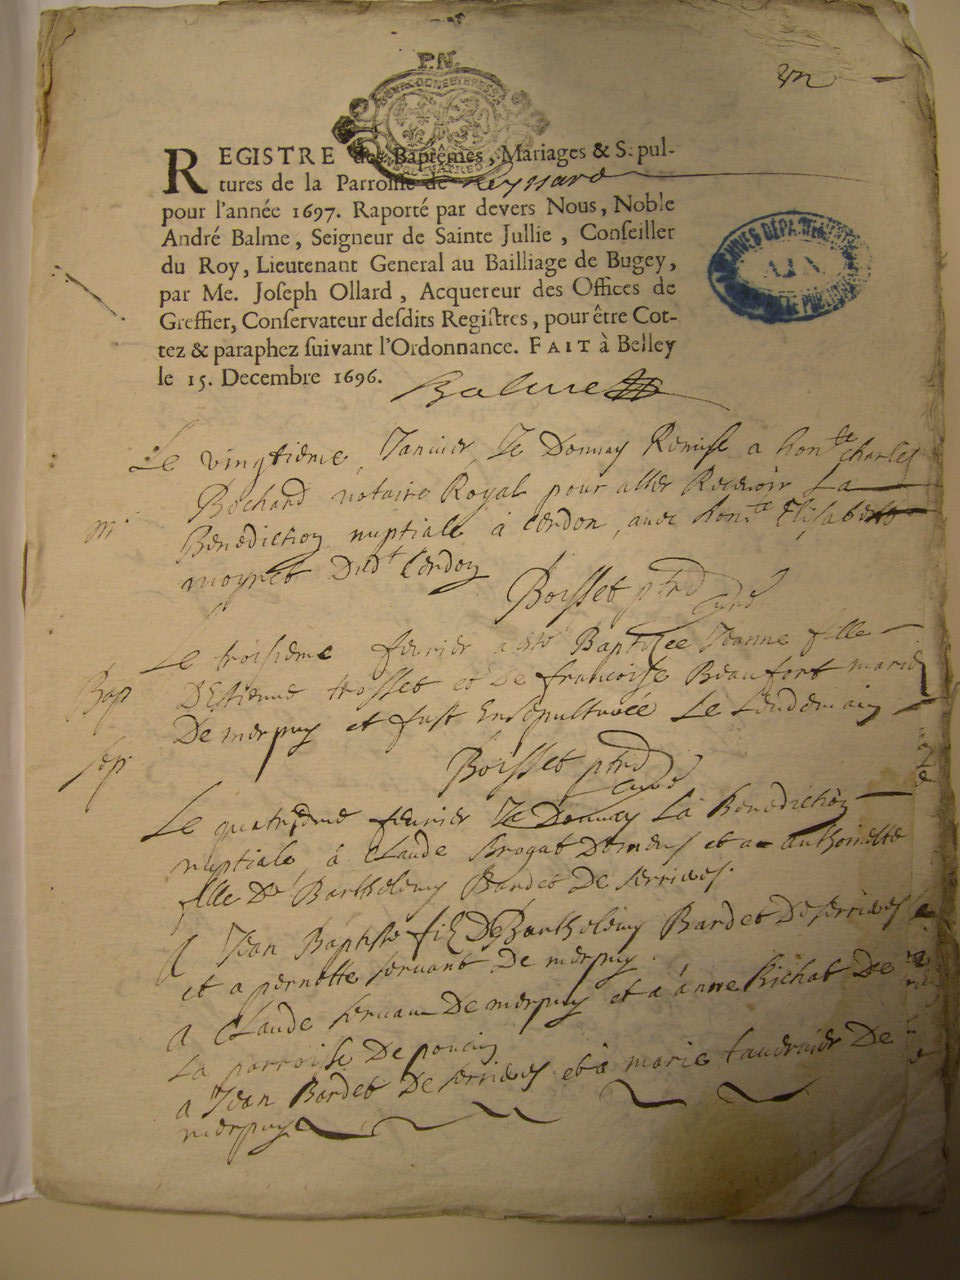 P.N.
un
REGISTRE des Baptêmes, Mariages & S. pul-
tures de la Parroisse de Leyssard
pour l'année 1697. Raporté par devers Nous, Noble
André Balme, Seigneur de Sainte Jullie, Conseiller
du Roy, Lieutenant General au Bailliage de Bugey,
par Me. Joseph Ollard, Acquereur des Offices de
Greffier, Conservateur desdits Registres, pour être Cot-
tez & paraphez suivant l'Ordonnance. FAIT à Belley
le 15. Decembre 1696. Balme
ARCHIVES DÉPARTEMENTALES
AIN
Le vingtieme Janvier Je Donnay Remise a hon.te charles
m. Bochard notaire Royal pour aller Recevoir La
Benediction nuptiale à Cerdon, avec hon.te Elisabeth
moyret Dud.t Cerdon
Boisset ptre Curé
Le troisieme fevrier a esté Baptisee Jeanne fille
Bap DEstienne trosset et De francoise Beaufort mariez
De merpuy et fust Ensepulturée Le Lendemain
sep
Boisset ptre Curé
Le quatrieme fevrier Je Donnay La Benediction
nuptiale à Claude et a anthoinette
fille De Barthelemy Bardet De serrieres.
A Jean Baptiste filz De Barthelemy Bardet De serrieres
et a pernette servant De merpuy.
A Claude servan De merpuy et à anne Richat De
La parroisse De poncin
a Jean Bardet De serrieres et à marie tavernier De
merpuy